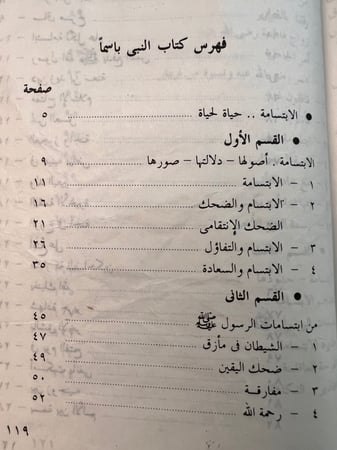 فهرس كتاب النبى باسماً
صفحة
● الابتسامة .. حياة لحياة ٥
● القسم الأول
الابتسامة . أصولها - دلالتها - صورها ٩
١ - الابتسامة ١١
٢ - الابتسام والضحك ١٦
الضحك الإنتقامى ٢١
٣ - الابتسام والتفاؤل ٢٦
٤ - الابتسام والسعادة ٣٥
● القسم الثانى
من ابتسامات الرسول ﷺ ٤٥
١ - الشيطان فى مأزق ٤٧
٢ - ضحك اليقين ٤٩
٣ - مفارقة ٥٠
٤ - رحمة الله ٥٢
١١٩